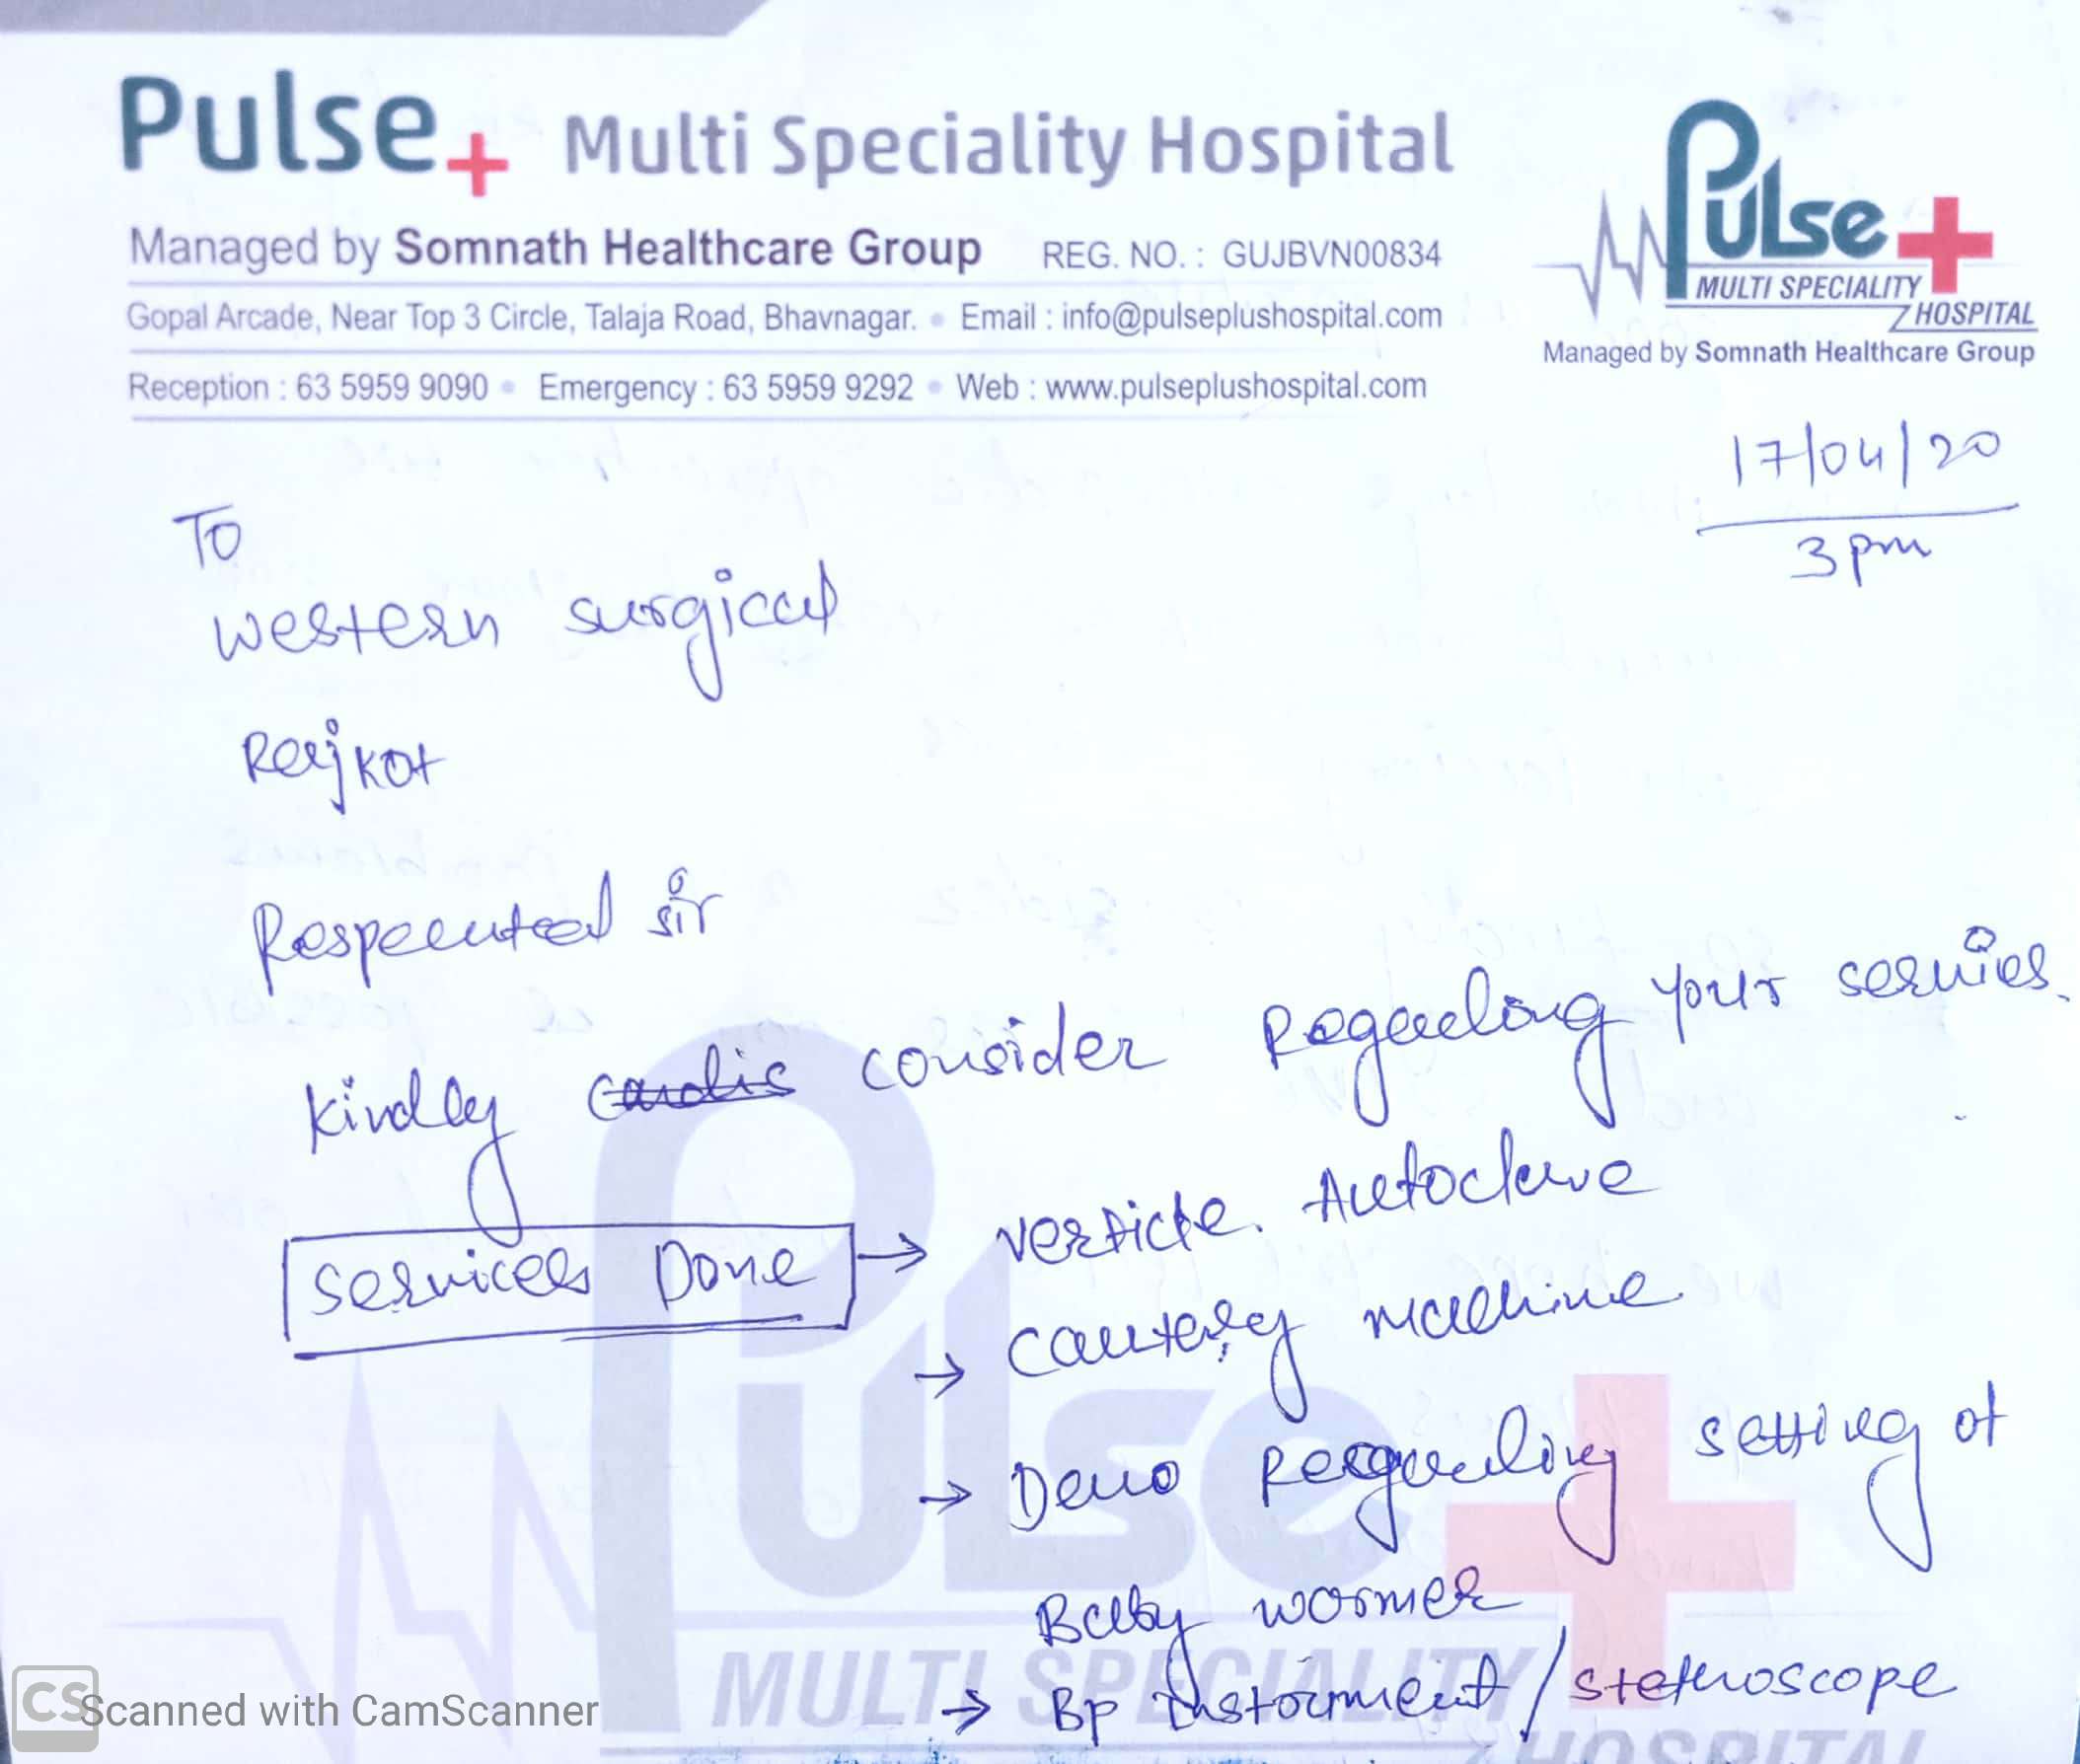 Pulse+ Multi Speciality Hospital
Managed by Somnath Healthcare Group REG. NO. : GUJBVN00834
Gopal Arcade, Near Top 3 Circle, Talaja Road, Bhavnagar. • Email : info@pulseplushospital.com
Reception : 63 5959 9090 • Emergency : 63 5959 9292 • Web : www.pulseplushospital.com
Pulse+
MULTI SPECIALITY
HOSPITAL
Managed by Somnath Healthcare Group
17/04/20
3 pm
To
western surgical
Rajkot
Respeected sir
Kindly consider Regarding your servies.
Services Done → verticle. Autoclave
→ cautery machine
→ Demo Regarding setting of
Baby wormer
→ Bp Instorment / stethoscope
Pulse+
MULTI SPECIALITY
HOSPITAL
CS Scanned with CamScanner